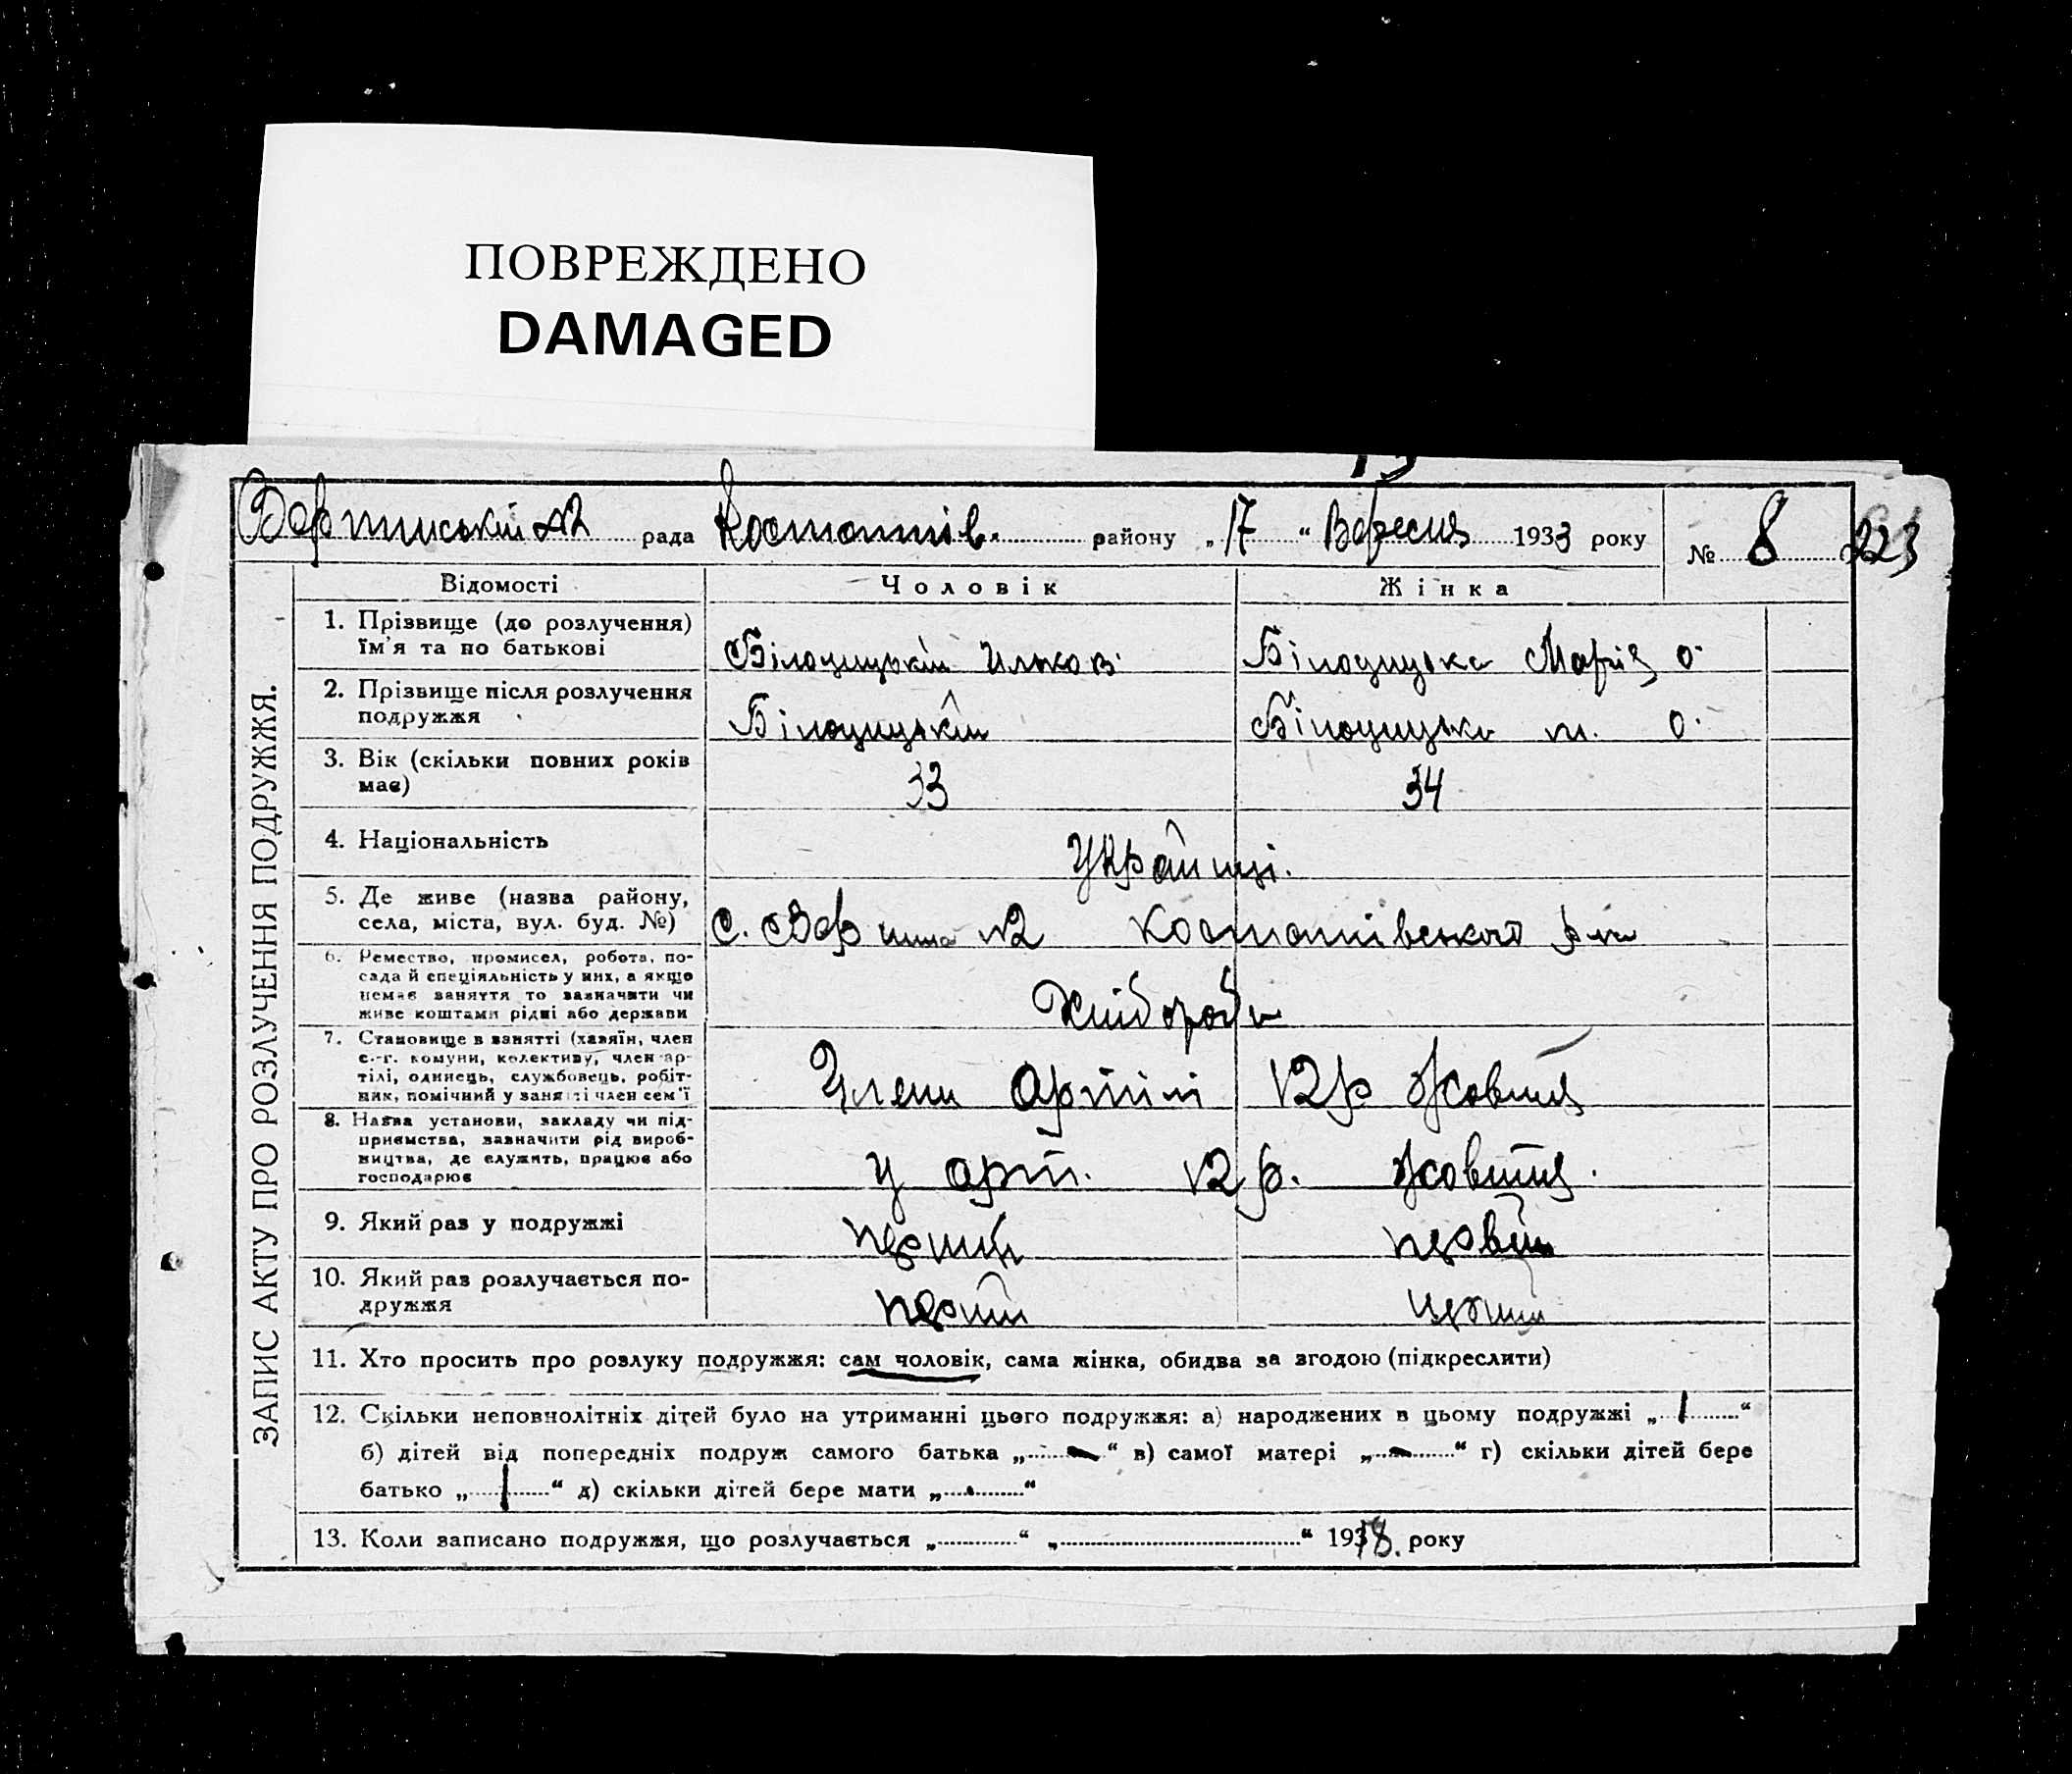 ПОВРЕЖДЕНО
DAMAGED
рада район у „17“ Вересня 1933 року № 8 223
ЗАПИС АКТУ ПРО РОЗЛУЧЕННЯ ПОДРУЖЖЯ.
Відомості Чоловік Жінка
1. Прізвище (до розлучення) їм'я та по батькові Білоцицький Білоцицька Марія О.
2. Прізвище після розлучення подружжя Білоцицький Білоцицька М. О.
3. Вік (скільки повних років має) 33 34
4. Національність Українці.
5. Де живе (назва району, села, міста, вул. буд. №) с. №2
6. Ремество, промисел, робота, посада й спеціяльність у них, а якщо немає заняття то зазначити чи живе коштами рідні або держави Хлібороби
7. Становище в занятті (хазяїн, член с.-г. комуни, колективу, член артілі, одинець, службовець, робітник, помічний у занятті член сем'ї Члени артілі 12 р Жовтня
8. Назва установи, закладу чи підприємства, зазначити рід виробництва, де служить, працює або господарює у арт. 12 р. Жовтня.
9. Який раз у подружжі перший первий
10. Який раз розлучається подружжя перший перший
11. Хто просить про розлуку подружжя: сам чоловік, сама жінка, обидва за згодою (підкреслити)
12. Скільки неповнолітніх дітей було на утриманні цього подружжя: а) народжених в цьому подружжі „1“
б) дітей від попередніх подруж самого батька „-“ в) самої матері „-“ г) скільки дітей бере
батько „1“ д) скільки дітей бере мати „-“
13. Коли записано подружжя, що розлучається „ “ „ “ року